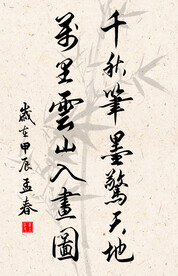 千秋筆墨驚天地
萬里雲山入畫圖
歲在甲辰孟春